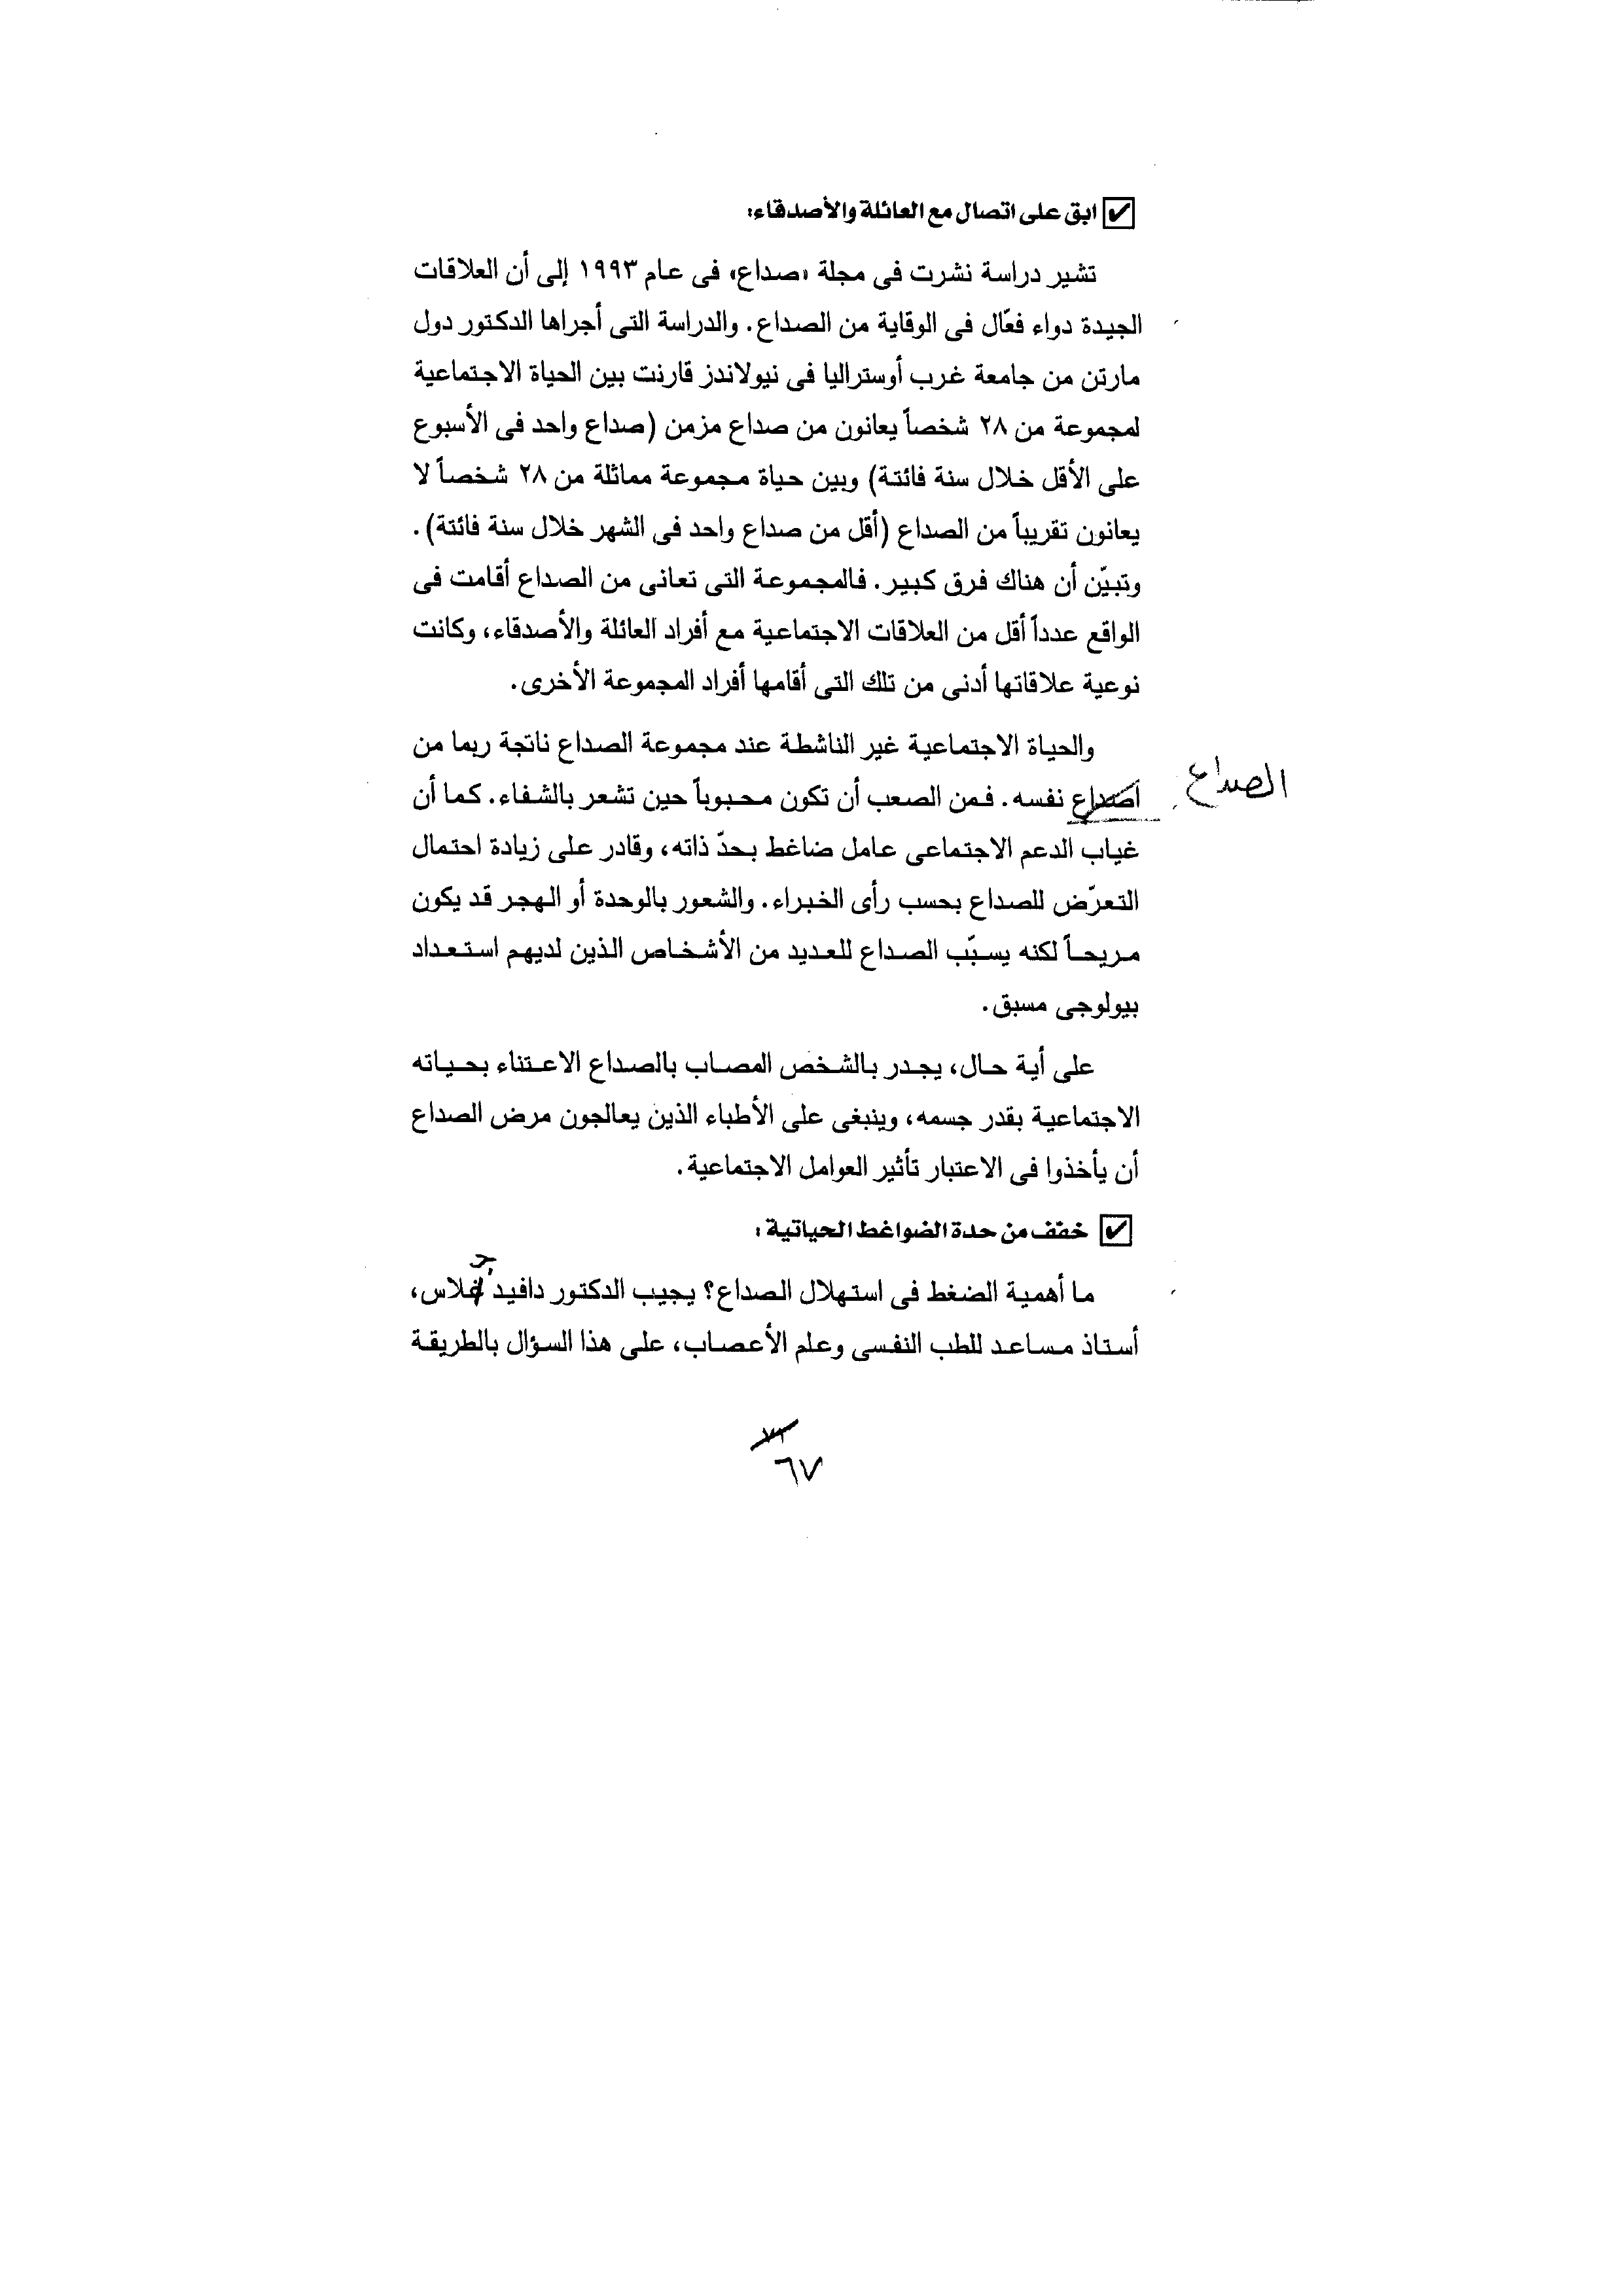 ☑ ابق على اتصال مع العائلة والأصدقاء:
تشير دراسة نشرت فى مجلة «صداع» فى عام ١٩٩٣ إلى أن العلاقات
الجيدة دواء فعّال فى الوقاية من الصداع. والدراسة التى أجراها الدكتور دول
مارتن من جامعة غرب أوستراليا فى نيولاندز قارنت بين الحياة الاجتماعية
لمجموعة من ٢٨ شخصاً يعانون من صداع مزمن (صداع واحد فى الأسبوع
على الأقل خلال سنة فائتة) وبين حياة مجموعة مماثلة من ٢٨ شخصاً لا
يعانون تقريباً من الصداع (أقل من صداع واحد فى الشهر خلال سنة فائتة).
وتبيّن أن هناك فرق كبير. فالمجموعة التى تعانى من الصداع أقامت فى
الواقع عدداً أقل من العلاقات الاجتماعية مع أفراد العائلة والأصدقاء، وكانت
نوعية علاقاتها أدنى من تلك التى أقامها أفراد المجموعة الأخرى.
والحياة الاجتماعية غير الناشطة عند مجموعة الصداع ناتجة ربما من
الصداع
اصداع نفسه. فمن الصعب أن تكون محبوباً حين تشعر بالشفاء. كما أن
غياب الدعم الاجتماعى عامل ضاغط بحدّ ذاته، وقادر على زيادة احتمال
التعرّض للصداع بحسب رأى الخبراء. والشعور بالوحدة أو الهجر قد يكون
مريحاً لكنه يسبّب الصداع للعديد من الأشخاص الذين لديهم استعداد
بيولوجى مسبق.
على أية حال، يجدر بالشخص المصاب بالصداع الاعتناء بحياته
الاجتماعية بقدر جسمه، وينبغى على الأطباء الذين يعالجون مرض الصداع
أن يأخذوا فى الاعتبار تأثير العوامل الاجتماعية.
☑ خفف من حدة الضواغط الحياتية:
ما أهمية الضغط فى استهلال الصداع؟ يجيب الدكتور دافيد غلاس،
أستاذ مساعد للطب النفسى وعلم الأعصاب، على هذا السؤال بالطريقة
٦٧